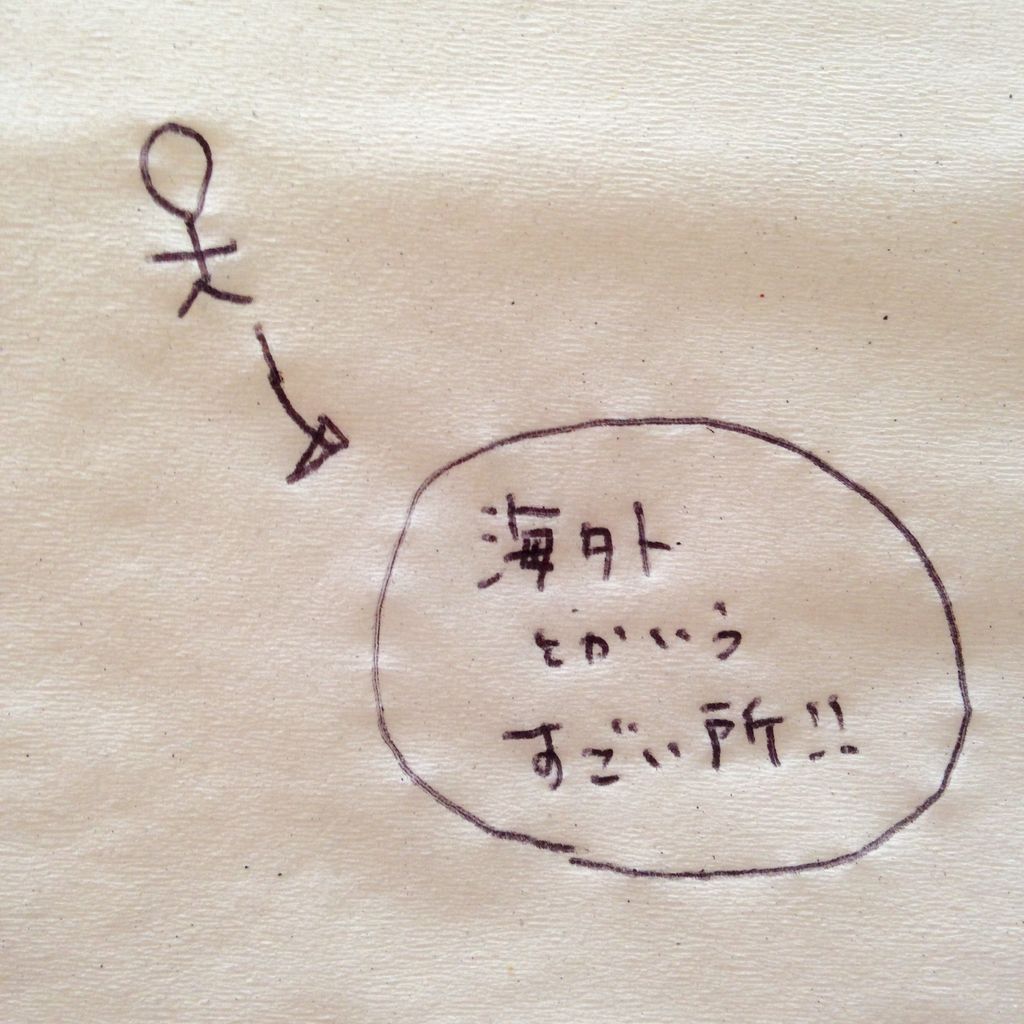 海外
とかいう
すごい所!!